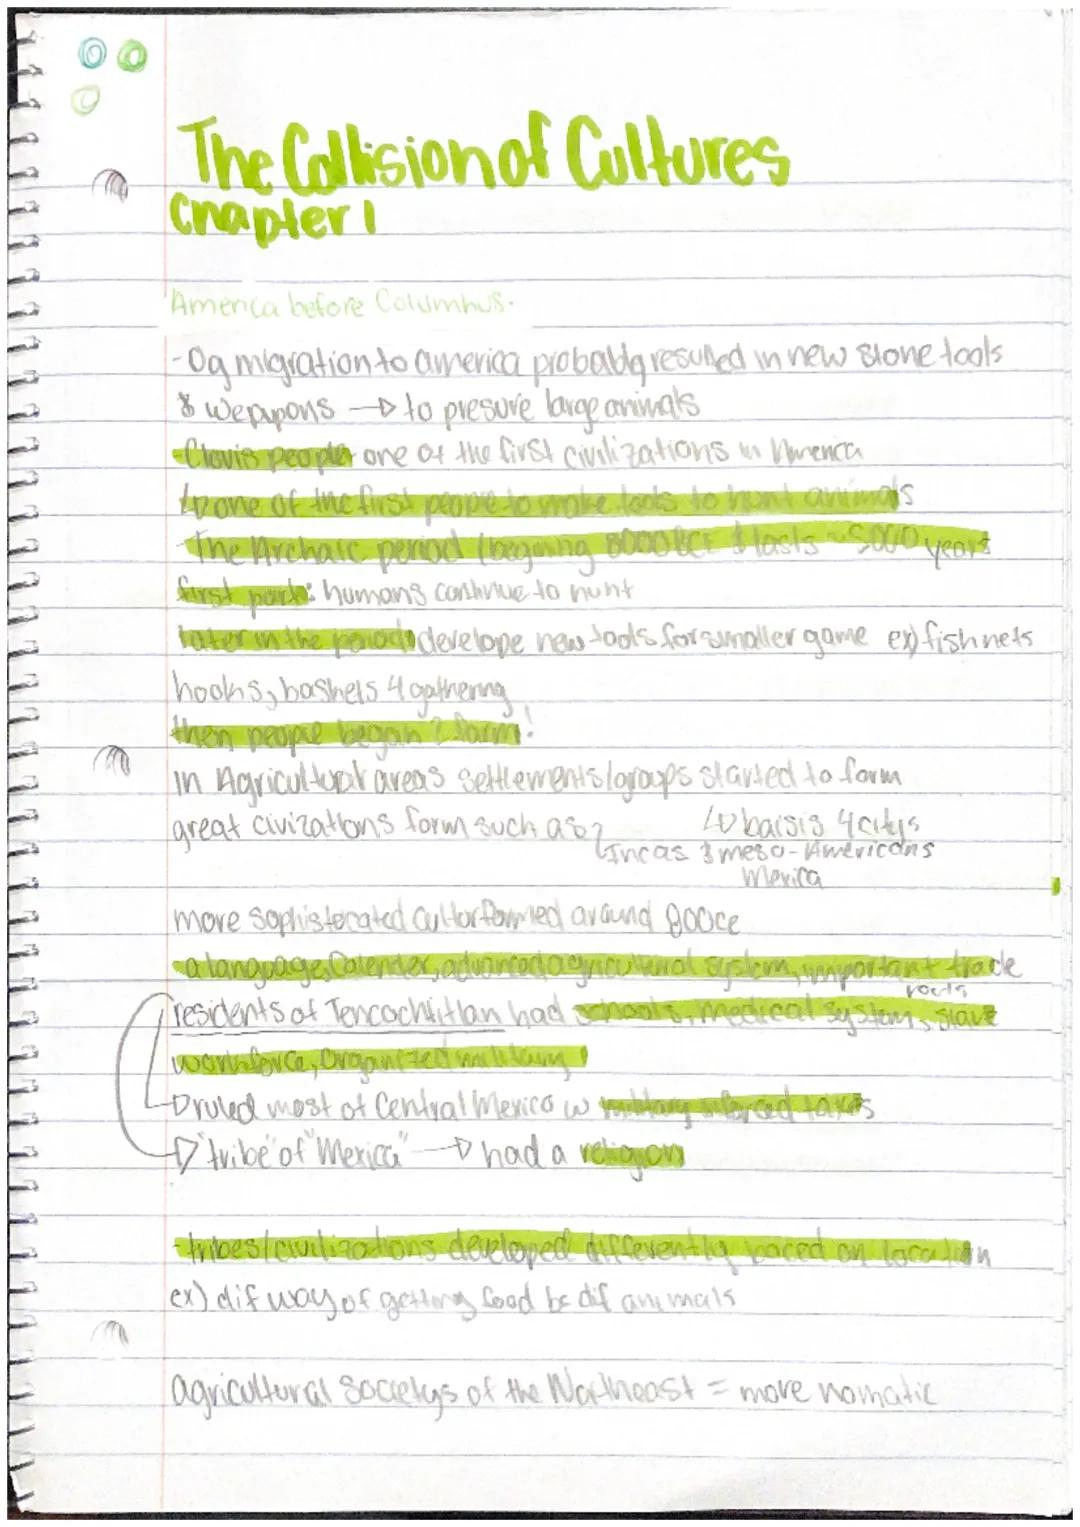 The Collision of Cultures
Chapter 1
America before Columbus.
- Og migration to america probably resulted in new stone tools
& weapons → to presure large animals
- Clovis people one of the first civilizations in America
↳ one of the first people to make tools to hunt animals
- The Archaic period (begining 8000 BCE & lasts ~5000 years
first part: humans continue to hunt
later in the period develope new tools for smaller game ex) fishnets
hooks, baskets 4 gathering
then people began 2 farm!
in Agricultural areas settlements/groups started to form
great civizations form such as ↳ baisis 4 citys
↳ Incas & meso-Americans
Mexica
more sophistecated cultur formed around 800ce
- a language, Calender, advanced agricultural system, important trade
routs
residents of Tencochtitlan had schools, medical system, slave
workforce, organized military
→ ruled most of Central Mexico w military inforced taxes
→ "tribe" of "Mexica" → had a religion
- tribes/civilizations developed differently baced on location
ex) dif way of getting food bc dif animals
agricultural societys of the Northeast = more nomatic